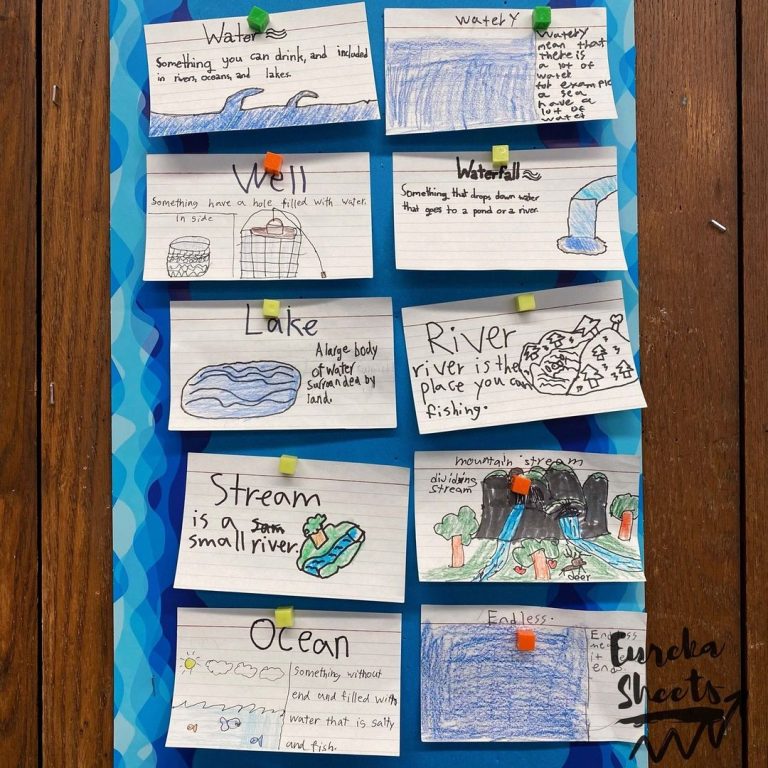 Water
Something you can drink, and included
in rivers, oceans, and lakes.
watery
watery
mean that
there is
a lot of
water
for example
a sea
have a
lot of
water
Well
Something have a hole filled with water.
In side
Waterfall
Something that drops down water
that goes to a pond or a river.
Lake
A large body
of water
surrounded by
land.
River
river is the
place you can
fishing.
Stream
is a
small river.
mountain stream
dividing
stream
deer
Ocean
Something without
end and filled with
water that is salty
and fish.
Endless.
Endless
it
end
Eureka
Sheets